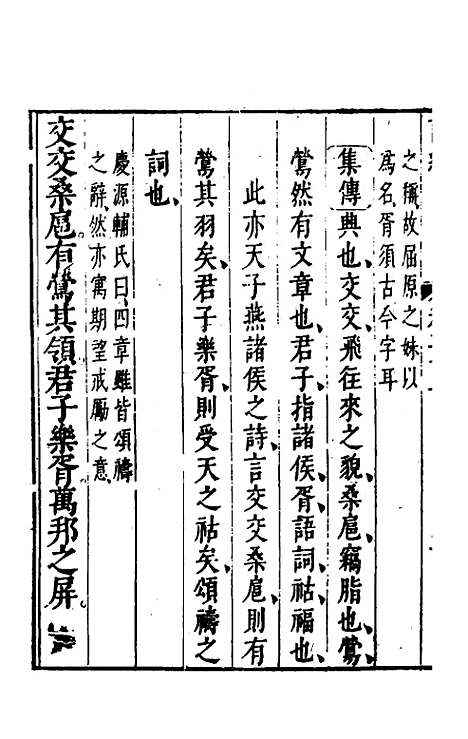 之稱故屈原之妹以
爲名胥須古今字耳
集傳興也交交飛往來之貌桑扈竊脂也鶯
鶯然有文章也君子指諸侯胥語詞祜福也
此亦天子燕諸侯之詩言交交桑扈則有
鶯其羽矣君子樂胥則受天之祜矣頌禱之
詞也
慶源輔氏曰四章雖皆頌禱
之辭然亦寓期望戒勵之意
交交桑扈有鶯其領君子樂胥萬邦之屏